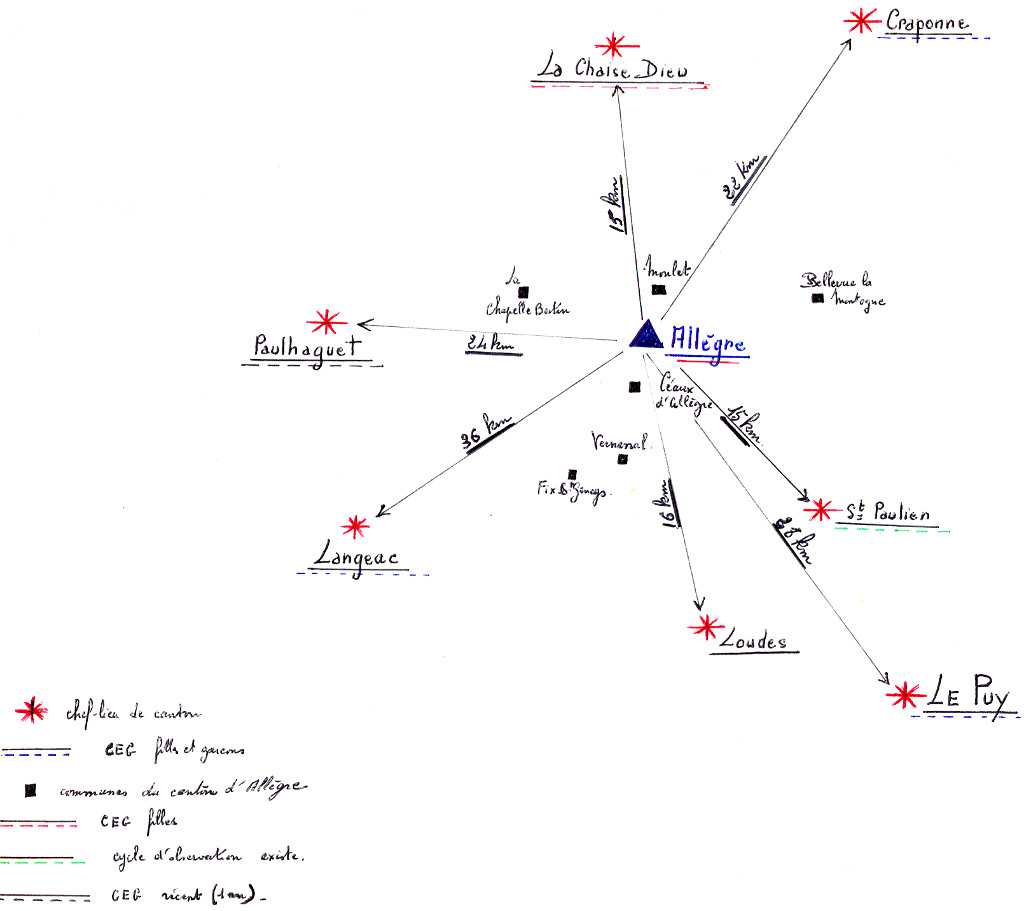 Craponne
La Chaise Dieu
22 km
15 km
Monlet
La
Chapelle Bertin
Bellevue la
Montagne
Paulhaguet
24 km
Allègre
Céaux
d'Allègre
15 km.
36 km
Vernassal.
Fix St Geneys.
16 km
St Paulien
28 km
Langeac
Loudes
LE PUY
chef-lieu de canton
CEG filles et garcons
communes du canton d'Allègre
CEG filles
cycle d'observation existe.
CEG récent (1 an)_